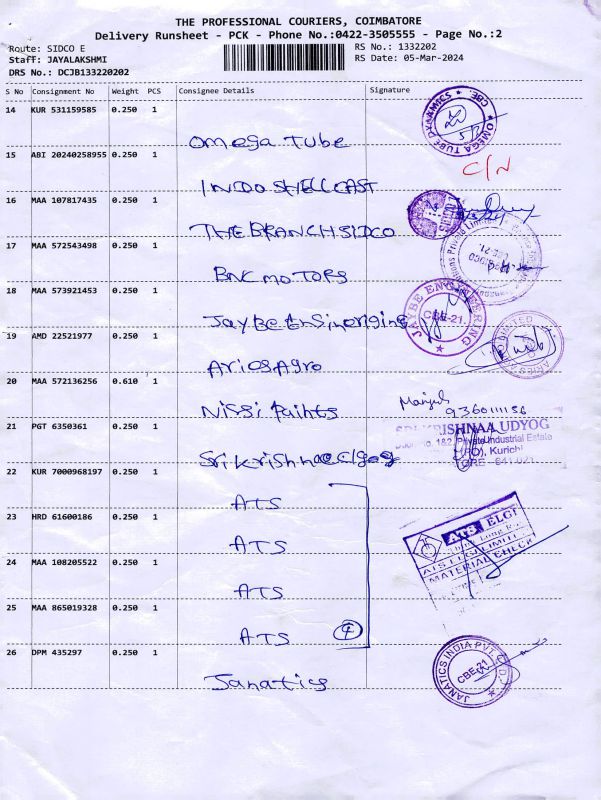 THE PROFESSIONAL COURIERS, COIMBATORE
Delivery Runsheet - PCK - Phone No.:0422-3505555 - Page No.:2
Route: SIDCO E
RS No.: 1332202
Staff: JAYALAKSHMI
RS Date: 05-Mar-2024
DRS No.: DCJB133220202
S No Consignment No Weight PCS Consignee Details Signature
14 KUR 531159585 0.250 1
Omega Tube
OMEGA TUBE DYNAMICS * CBE.
15 ABI 20240258955 0.250 1
C/N
INDO SHELL CAST
16 MAA 107817435 0.250 1
THE BRANCH SIDCO
17 MAA 572543498 0.250 1
BNC MOTORS
18 MAA 573921453 0.250 1
Jaybe Ensineriging
JAYBE ENGINEERING
CBE-21.
19 AMD 22521977 0.250 1
Aries Agro
20 MAA 572136256 0.610 1
Nissi Paints
21 PGT 6350361 0.250 1
SRI KRISHNAA UDYOG
Private Industrial Estate
(PO), Kurichi
22 KUR 7000968197 0.250 1
ATS
23 HRD 61600186 0.250 1
ATS
ATS ELGI
ATS ELGI LIMITED
MATERIAL CHECK
24 MAA 108205522 0.250 1
ATS
25 MAA 865019328 0.250 1
ATS
4
26 DPM 435297 0.250 1
Janatics
JANATICS INDIA PVT. LTD.
CBE-21